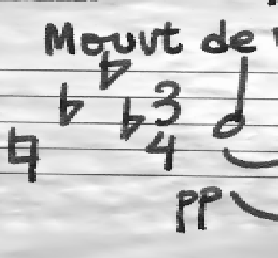 Mouvt de
3
4
pp